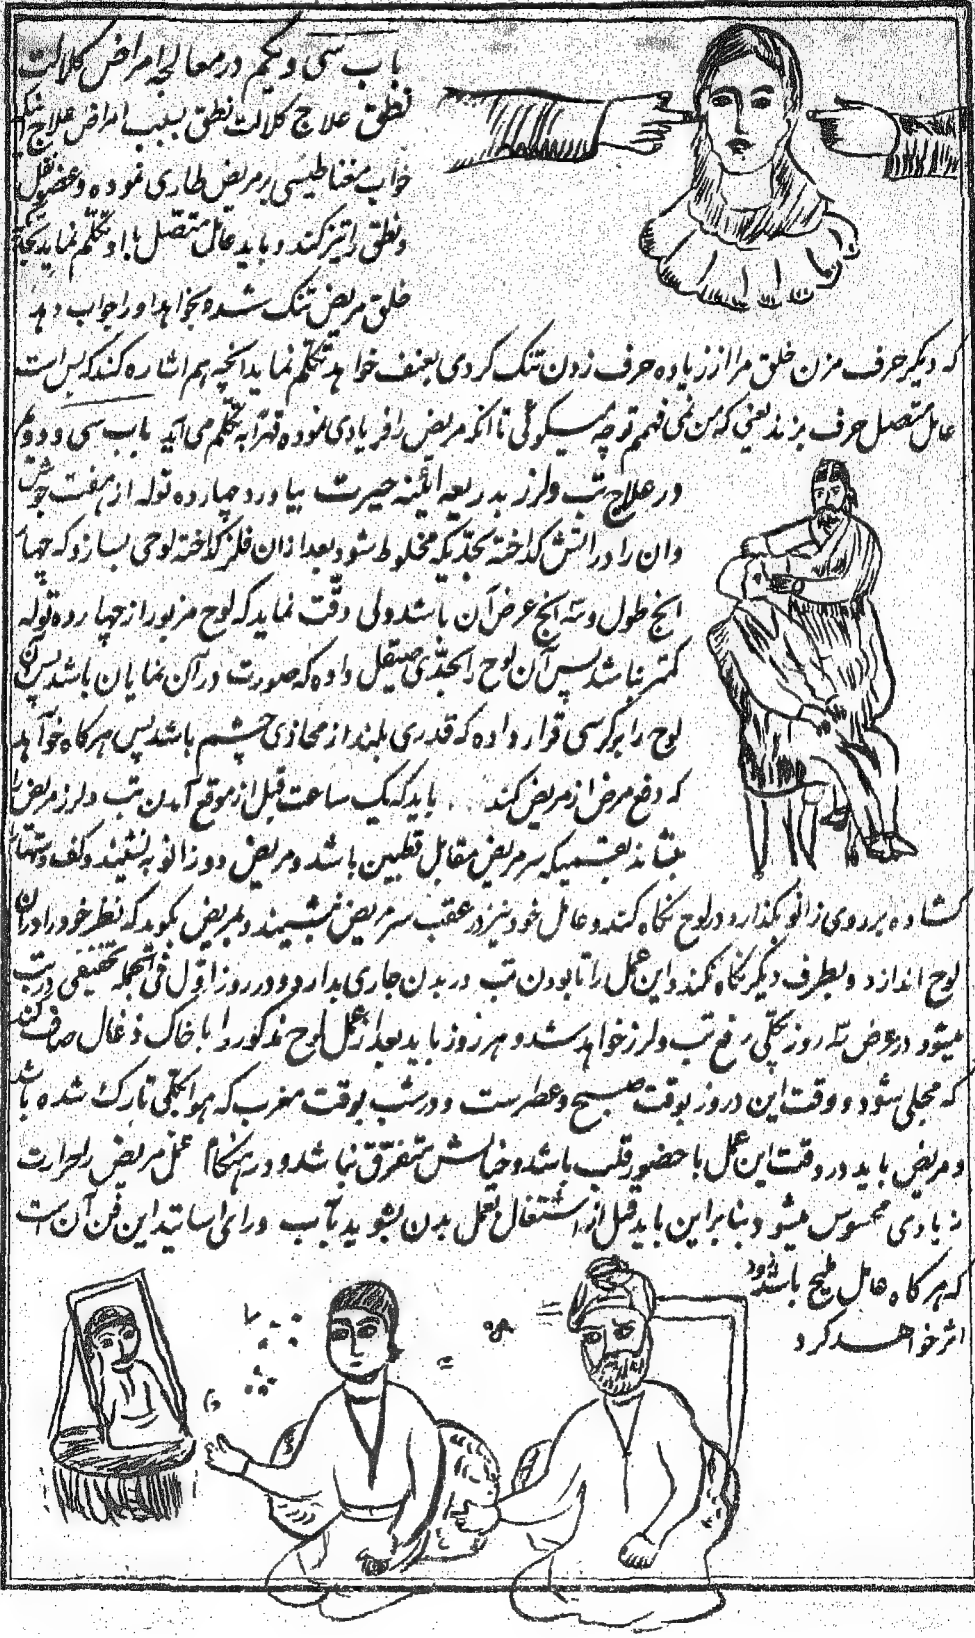 باب سی و یکم در معالجه امراض کلالت
نطق علاج کلالت نطق بسبب امراض علاج
خواب مغناطیسی بر مریض طاری نموده و عضو ثقل
و نطق را تیز کند و باید عامل متصل با او تکلم نماید
خلق مریض تنک شده بخواهد او را جواب دهد
که دیگر حرف مزن خلق مرا از زیاده حرف زدن تنک کردی بعنف خواهد تکلم نماید انچه هم اشاره کند که بس است
عامل متصل حرف بزند یعنی که من نمی فهمم تو چه میکوئی تا انکه مریض را فریادی نموده قهراً به تکلم می آید باب سی و دوم
در علاج تب و لرز بذریعه ائینه حیرت بیاورد چهارده توله از هفت جوش
و ان را در اتش کداخته بحدیکه مخلوط شود بعد ازان فلز کداخته لوحی بسازد که چهار
انج طول و سه انج عرض آن باشد ولی دقت نماید که لوح مزبور از چهارده توله
کمتر نباشد پس آن لوح را بحدی صیقل داده که صورت در آن نمایان باشد پس آن
لوح را بر کرسی قرار داده که قدری بلند از محاذی چشم باشد پس هرکاه خواهد
که دفع مرض از مریض کند باید که یک ساعت قبل از موقع آمدن تب و لرز مریض را
بنشاند بقسمیکه سر مریض مقابل قطبین باشد و مریض دو زانو بنشیند و کف دستها را
کشاده بر روی زانو بکذارد و در لوح نکاه کند و عامل خود نیز در عقب سر مریض بنشیند و بمریض بکوید که نظر خود را در آن
لوح اندازد و بطرف دیکر نکاه نکند و این عمل را تا بودن تب در بدن جاری بدارد و در روز اول فی الجمله تخفیفی در تب
میشود در عرض سه روز بکلی رفع تب و لرز خواهد شد و هر روز باید بعد از عمل لوح مذکور را با خاک ذغال صاف کند
که مجلی شود و وقت این در روز بوقت صبح و عصر است و در شب بوقت مغرب که هوا بکلی تاریک شده باشد
و مریض باید در وقت این عمل با حضور قلب باشد و خیالش متفرق نباشد و در هنکام عمل مریض را حرارت
زیادی محسوس میشود بنابراین باید قبل از اشتغال بعمل بدن بشوید بآب و رای اساتید این فن آن است
که هرکاه عامل طبیح باشد زود
اثر خواهد کرد